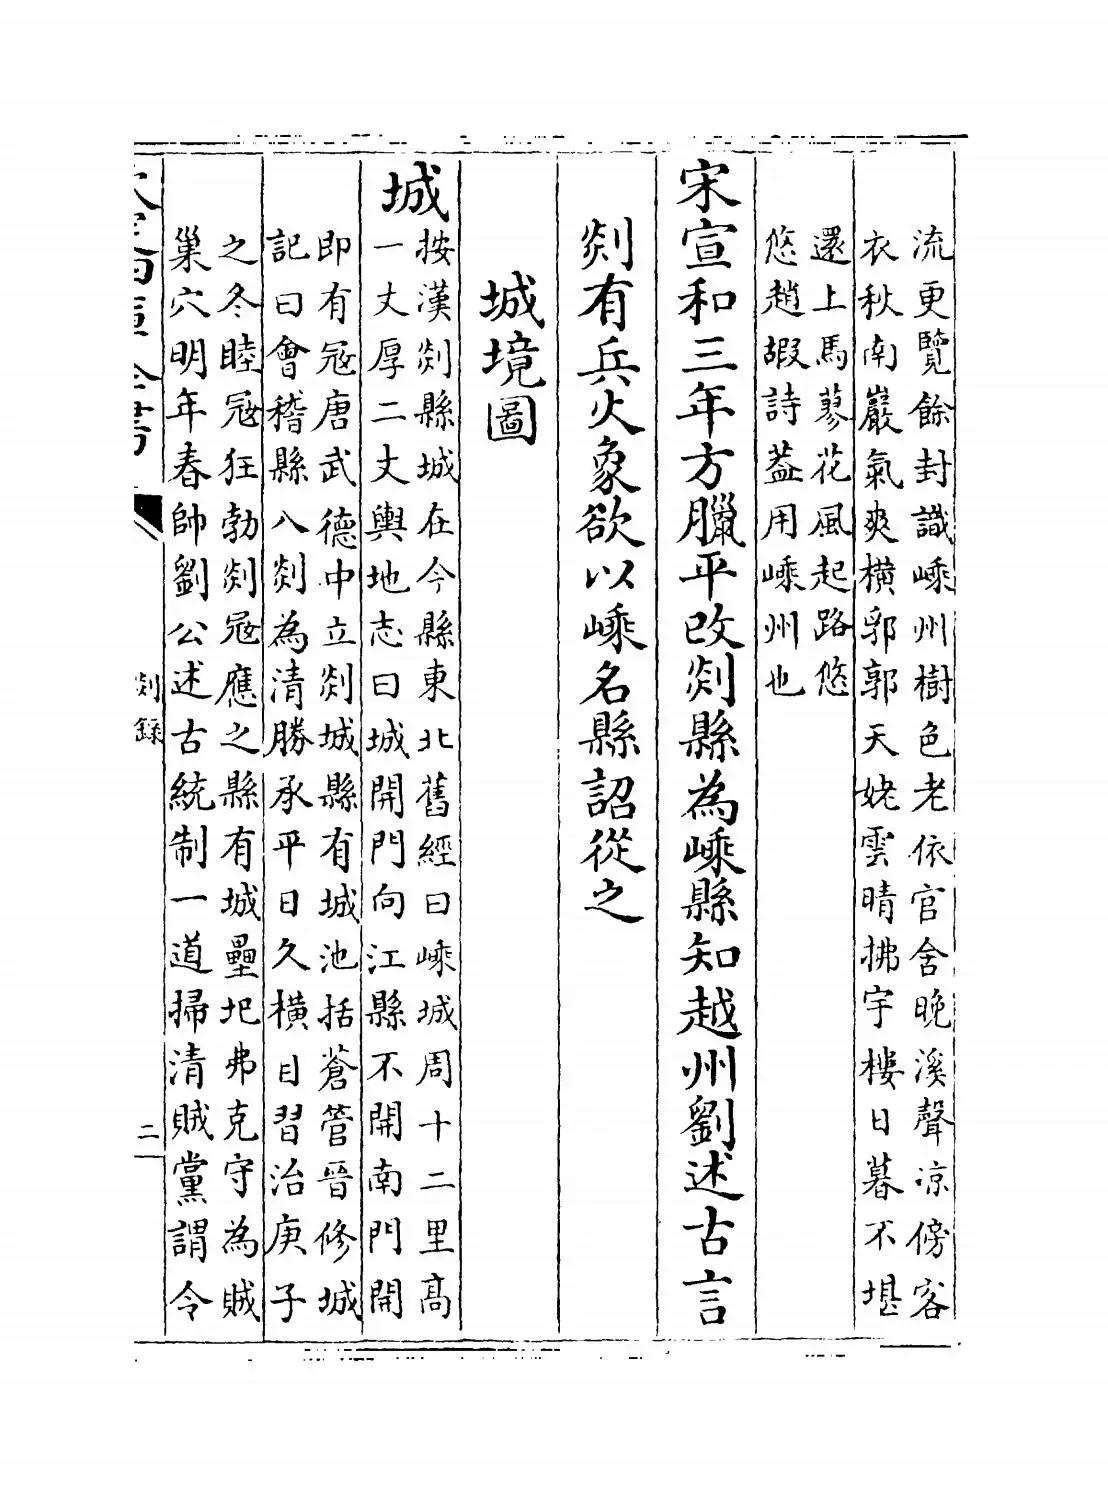 流更覽餘封識嵊州樹色老依官舍晚溪聲凉傍客
衣秋南巖氣爽橫郛郭天姥雲晴拂宇樓日暮不堪
還上馬蓼花風起路悠
悠趙嘏詩葢用嵊州也
宋宣和三年方臘平改剡縣為嵊縣知越州劉述古言
剡有兵火象欲以嵊名縣詔從之
城境圖
城
按漢剡縣城在今縣東北舊經曰嵊城周十二里高
一丈厚二丈輿地志曰城開門向江縣不開南門開
即有冦唐武德中立剡城縣有城池括蒼管晉修城
記曰會稽縣八剡為清勝承平日久橫目習治庚子
之冬睦冦狂勃剡冦應之縣有城壘圯弗克守為賊
巢穴明年春帥劉公述古統制一道掃清賊黨謂令
剡錄
二